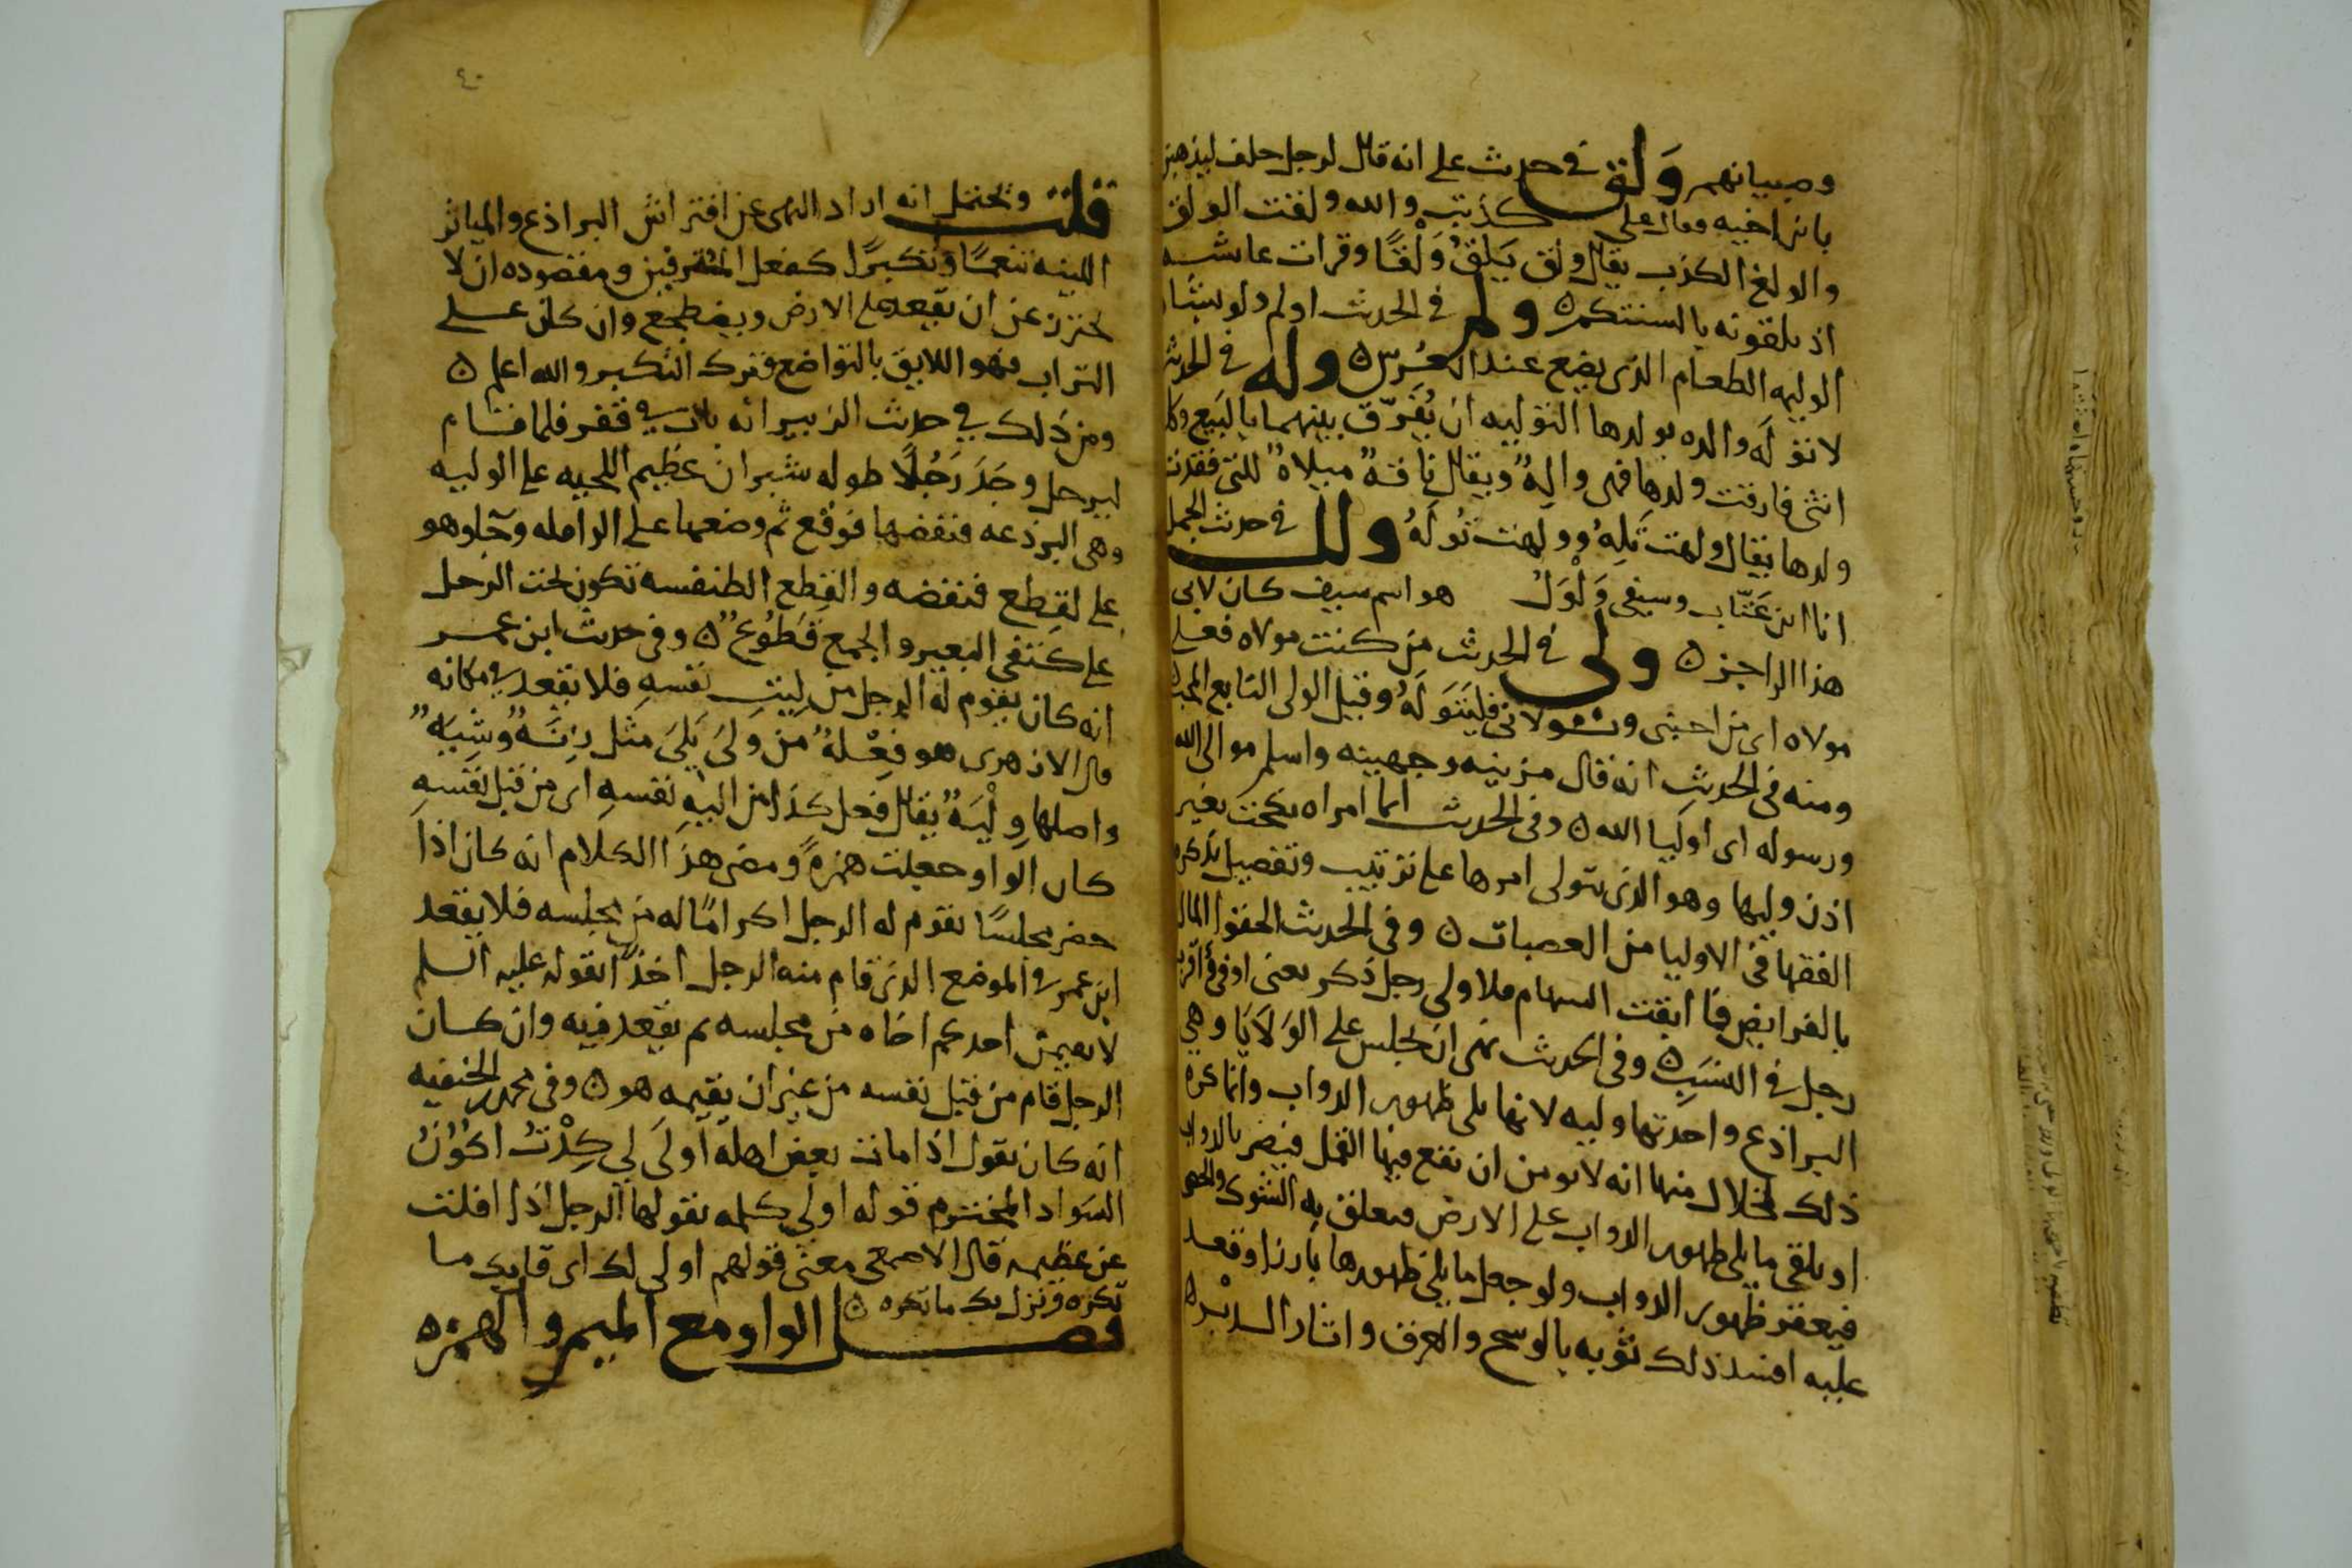 وصبيانهم ولق في حديث علي انه قال لرجل حلف ليذهبن
بابن اخيه وقال علي كذبت والله ولقت الولق
والولع الكذب يقال ولق يَلِقُ وَلْقًا وقرات عايشه
اذ تلقونه بالسنتكم ه ولم في الحديث اولم ولو بشاه
الوليمه الطعام الذي يضع عند العُرس ه وله في الحديث
لا تولَه والده بولدها التوليه ان يُفَرّق بينهما بالبيع وكل
انثى فارقت ولدها فهي والِهٌ ويقال ناقةٌ ميلاهٌ للتي فقدت
ولدها يقال ولهت تَلِهُ وولهت تُولَهُ ولل في حديث الجمل
انا ابن عَتّاب وسيفي وَلْوَلْ هو اسم سيف كان لابي
هذا الراجز ه ولي في الحديث من كنت مولاه فعلي
مولاه اي من احبني وتولاني فليَتَوَلَهُ وقيل الولي التابع المحب ه
ومنه في الحديث انه قال مزينه وجهينه واسلم موالي الله
ورسوله اي اوليا الله ه وفي الحديث ايما امراه نكحت بغير
اذن وليها وهو الذي يتولى امرها على ترتيب وتفصيل يذكره
الفقها في الاوليا من العصبات ه وفي الحديث الحقوا المال
بالفرايض فما ابقت السهام فلاولي رجل ذكر يعني ادنى واقرب
رجل في النسَبِ ه وفي الحديث نهى ان يجلس على الوَلايَا وهي
البراذع واحدتها وليه لانها تلي ظهور الدواب وانما كره
ذلك لخلال منها انه لا يومن ان تقع فيها القمل فيضر بالدواب
او يلقي ما يلي ظهور الدواب على الارض فيعلق به الشوك والحصى
فيعقر ظهور الدواب ولو جعل ما يلي ظهورها بارزا وقعد
عليه افسد ذلك ثوبه بالوسخ والعرق واثار الدبْره
٤٠
قلت ويحتمل انه اراد النهي عن افتراش البراذع والمياثر
اللينه تنعمًا وتكبرًا كفعل المترفين ومقصوده ان لا
يحترز عن ان يقعد على الارض ويضطجع وان كان على
التراب فهو اللايق بالتواضع وترك التكبر والله اعلم ه
ومن ذلك في حديث الزبير انه بات في قفر فلما قام
ليرحل وجَدَ رَجُلًا طوله شبران عظيم اللحيه على الوليه
وهي البرذعه فنفضها فوقع ثم وضعها على الراحله وجاوهو
على القِطع فنفضه والقِطع الطنفسه تكون تحت الرحل
على كتفي البعير والجمع قُطُوعٌ ه وفي حديث ابن عمر
انه كان يقوم له الرجل من لِيَّتِ نفسِهِ فلا يقعد في مكانه
قال الازهري هو فِعْلةٌ من وَلِيَ يَلِيَ مثل زِنَةٌ وشِيَةٌ
واصلها وِلْيَةٌ يقال فعل كذا من اليه نفسِهِ اي من قبل نفسِهِ
كان الواو جعلت همزهً ومعنى هذا الكلام انه كان اذا
حضر مجلسًا يقوم له الرجل اكرامًا له من مجلسه فلا يقعد
ابن عمر في الموضع الذي قام منه الرجل اخذًا بقوله عليه السلم
لا يقيمن احدكم اخاه من مجلسه ثم يقعد فيه وان كان
الرجل قام من قبل نفسه من غير ان يقيمه هو ه وفي محمد بن الحنفيه
انه كان يقول اذا مات بعض اهله اَولَى لِي كِدْتُ اكُونُ
السَواد المخترم قوله اولى كلمه يقولها الرجل اذا افلت
عن عظيمه قال الاصمعي معنى قولهم اولى لك اي قاربك ما
تكره ونزل بك ما تكره ه
فصل الواو مع الميم والهمزه